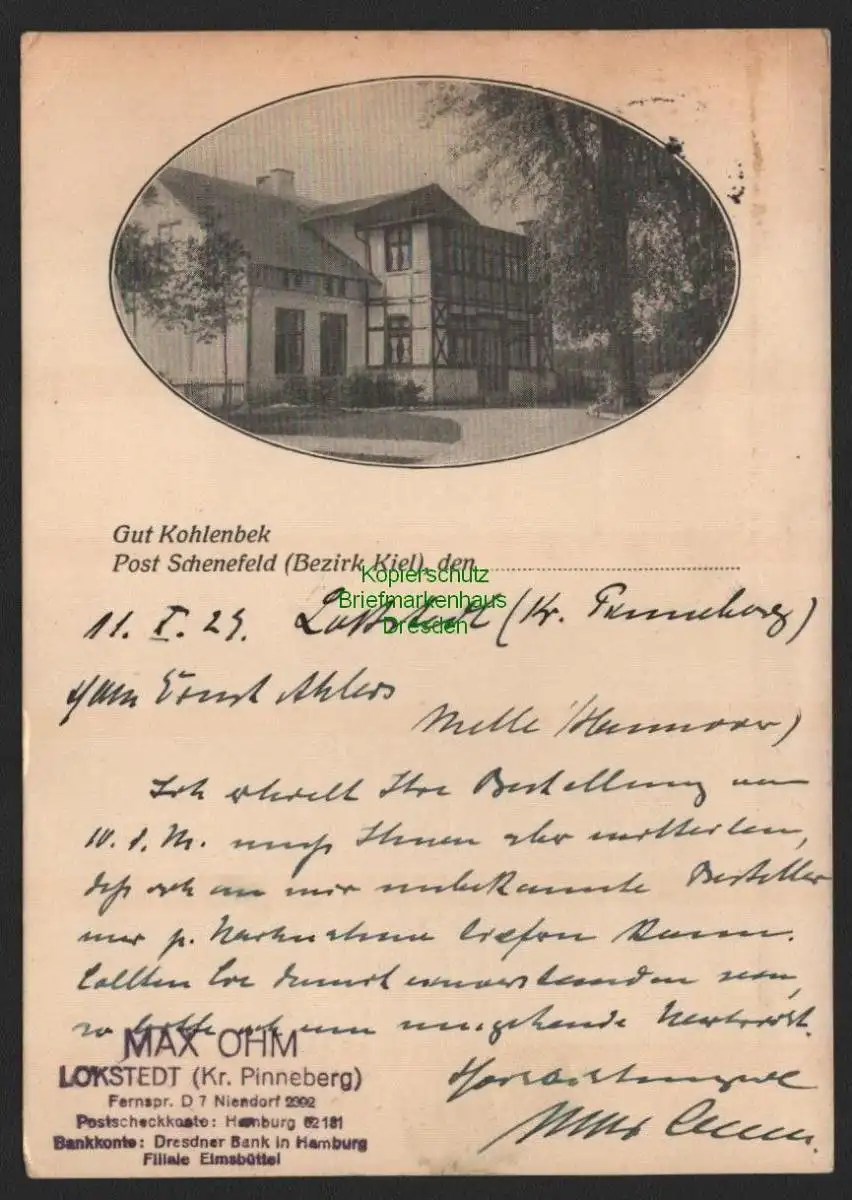 Gut Kohlenbek
Post Schenefeld (Bezirk Kiel), den
Kopierschutz
Briefmarkenhaus
Dresden
11. X. 29. Lokstedt (Kr. Pinneberg)
Ernst Ahlers
Melle (Hannover)
Ich erhielt Ihre Bestellung vom
10. d. M. muß Ihnen aber mitteilen,
daß ich an mir unbekannte Besteller
nur p. Nachnahme liefern kann.
Sollten Sie damit einverstanden sein,
so bitte ich um umgehende Nachricht.
Hochachtungsvoll
Max Ohm.
MAX OHM
LOKSTEDT (Kr. Pinneberg)
Fernspr. D 7 Niendorf 2392
Postscheckkonto: Hamburg 62181
Bankkonto: Dresdner Bank in Hamburg
Filiale Eimsbüttel